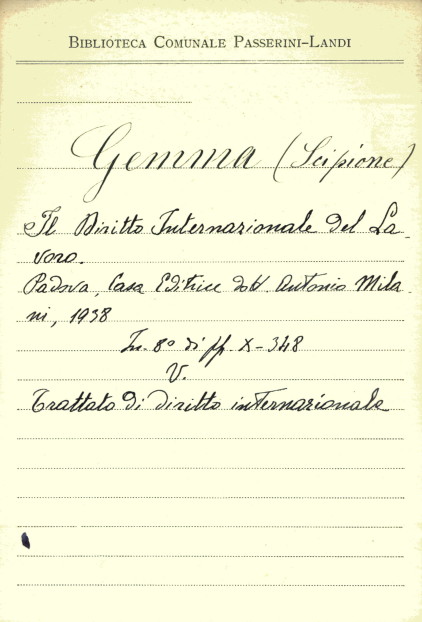 BIBLIOTECA COMUNALE PASSERINI-LANDI
Gemma (Scipione)
Il Diritto Internazionale del La-
voro.
Padova, Casa Editrice dott. Antonio Mila-
ni, 1938
In-8º di pp. X-348
V.
Trattato di diritto internazionale